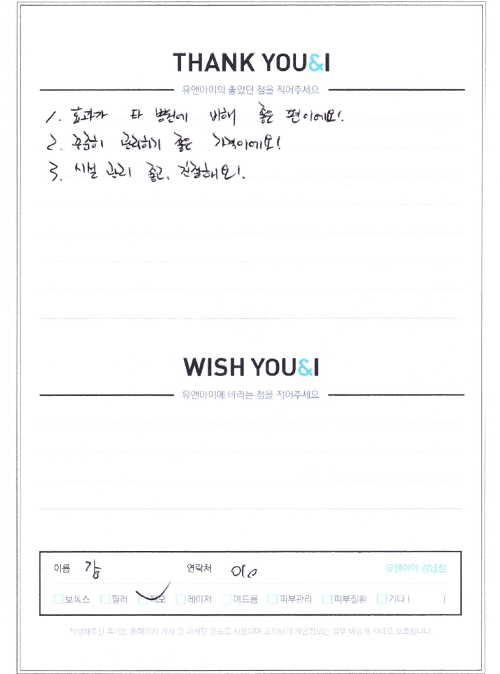 THANK YOU&I
유앤아이의 좋았던 점을 적어주세요
1. 효과가 타 병원에 비해 좋은 편이에요!
2. 꾸준히 관리하기 좋은 가격이에요!
3. 시설 관리 좋고, 친절해요!
WISH YOU&I
유앤아이에 바라는 점을 적어주세요
이름 강 연락처 010 유앤아이 강남점
보톡스 필러 제모 레이저 여드름 피부관리 피부질환 기타 ( )
작성해주신 후기는 홈페이지 게재 및 마케팅 용도로 사용되며 고객님의 개인정보는 일부 비공개 처리로 보호됩니다